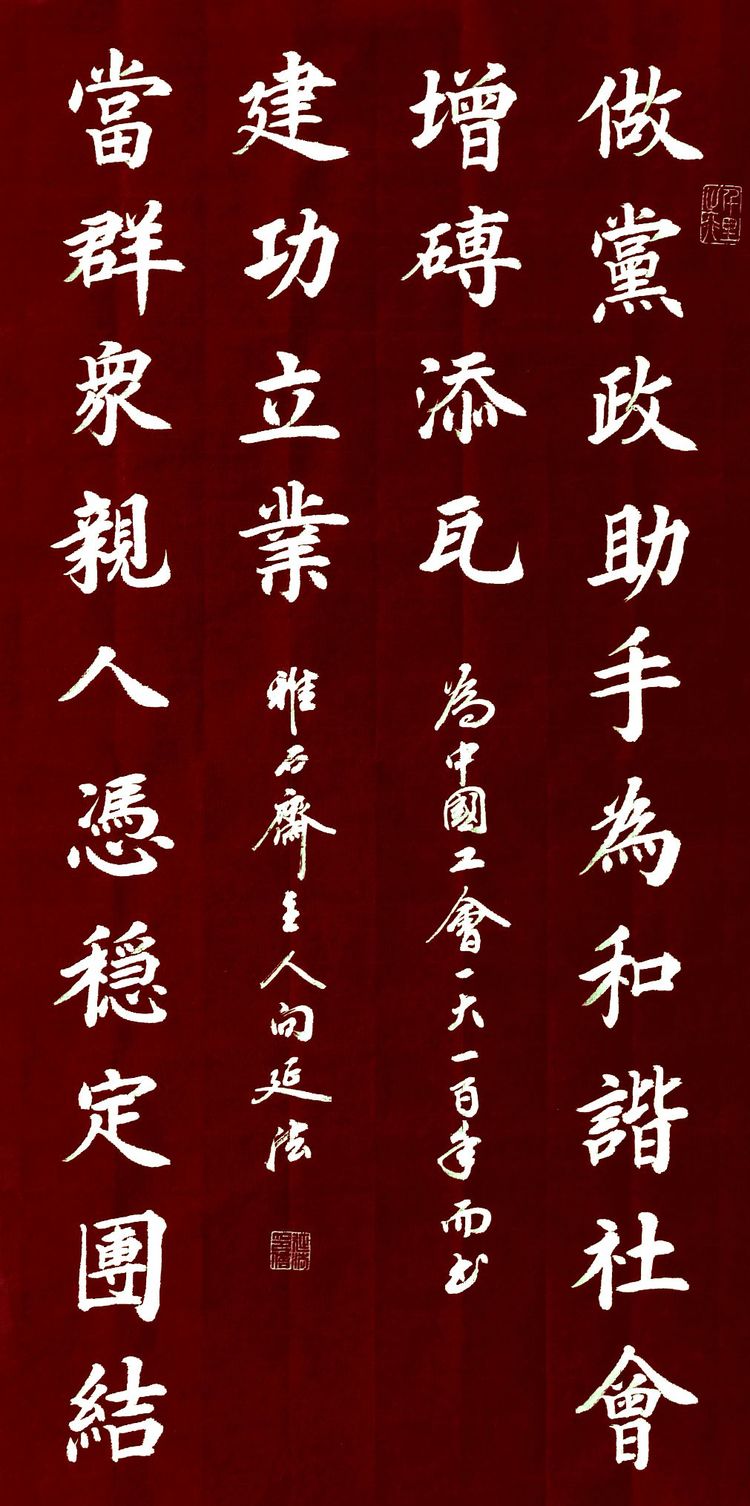 做黨政助手為和諧社會
增磚添瓦
當群衆親人憑穩定團結
建功立業
為中國工會一大一百年而书
雅石齋主人向延法